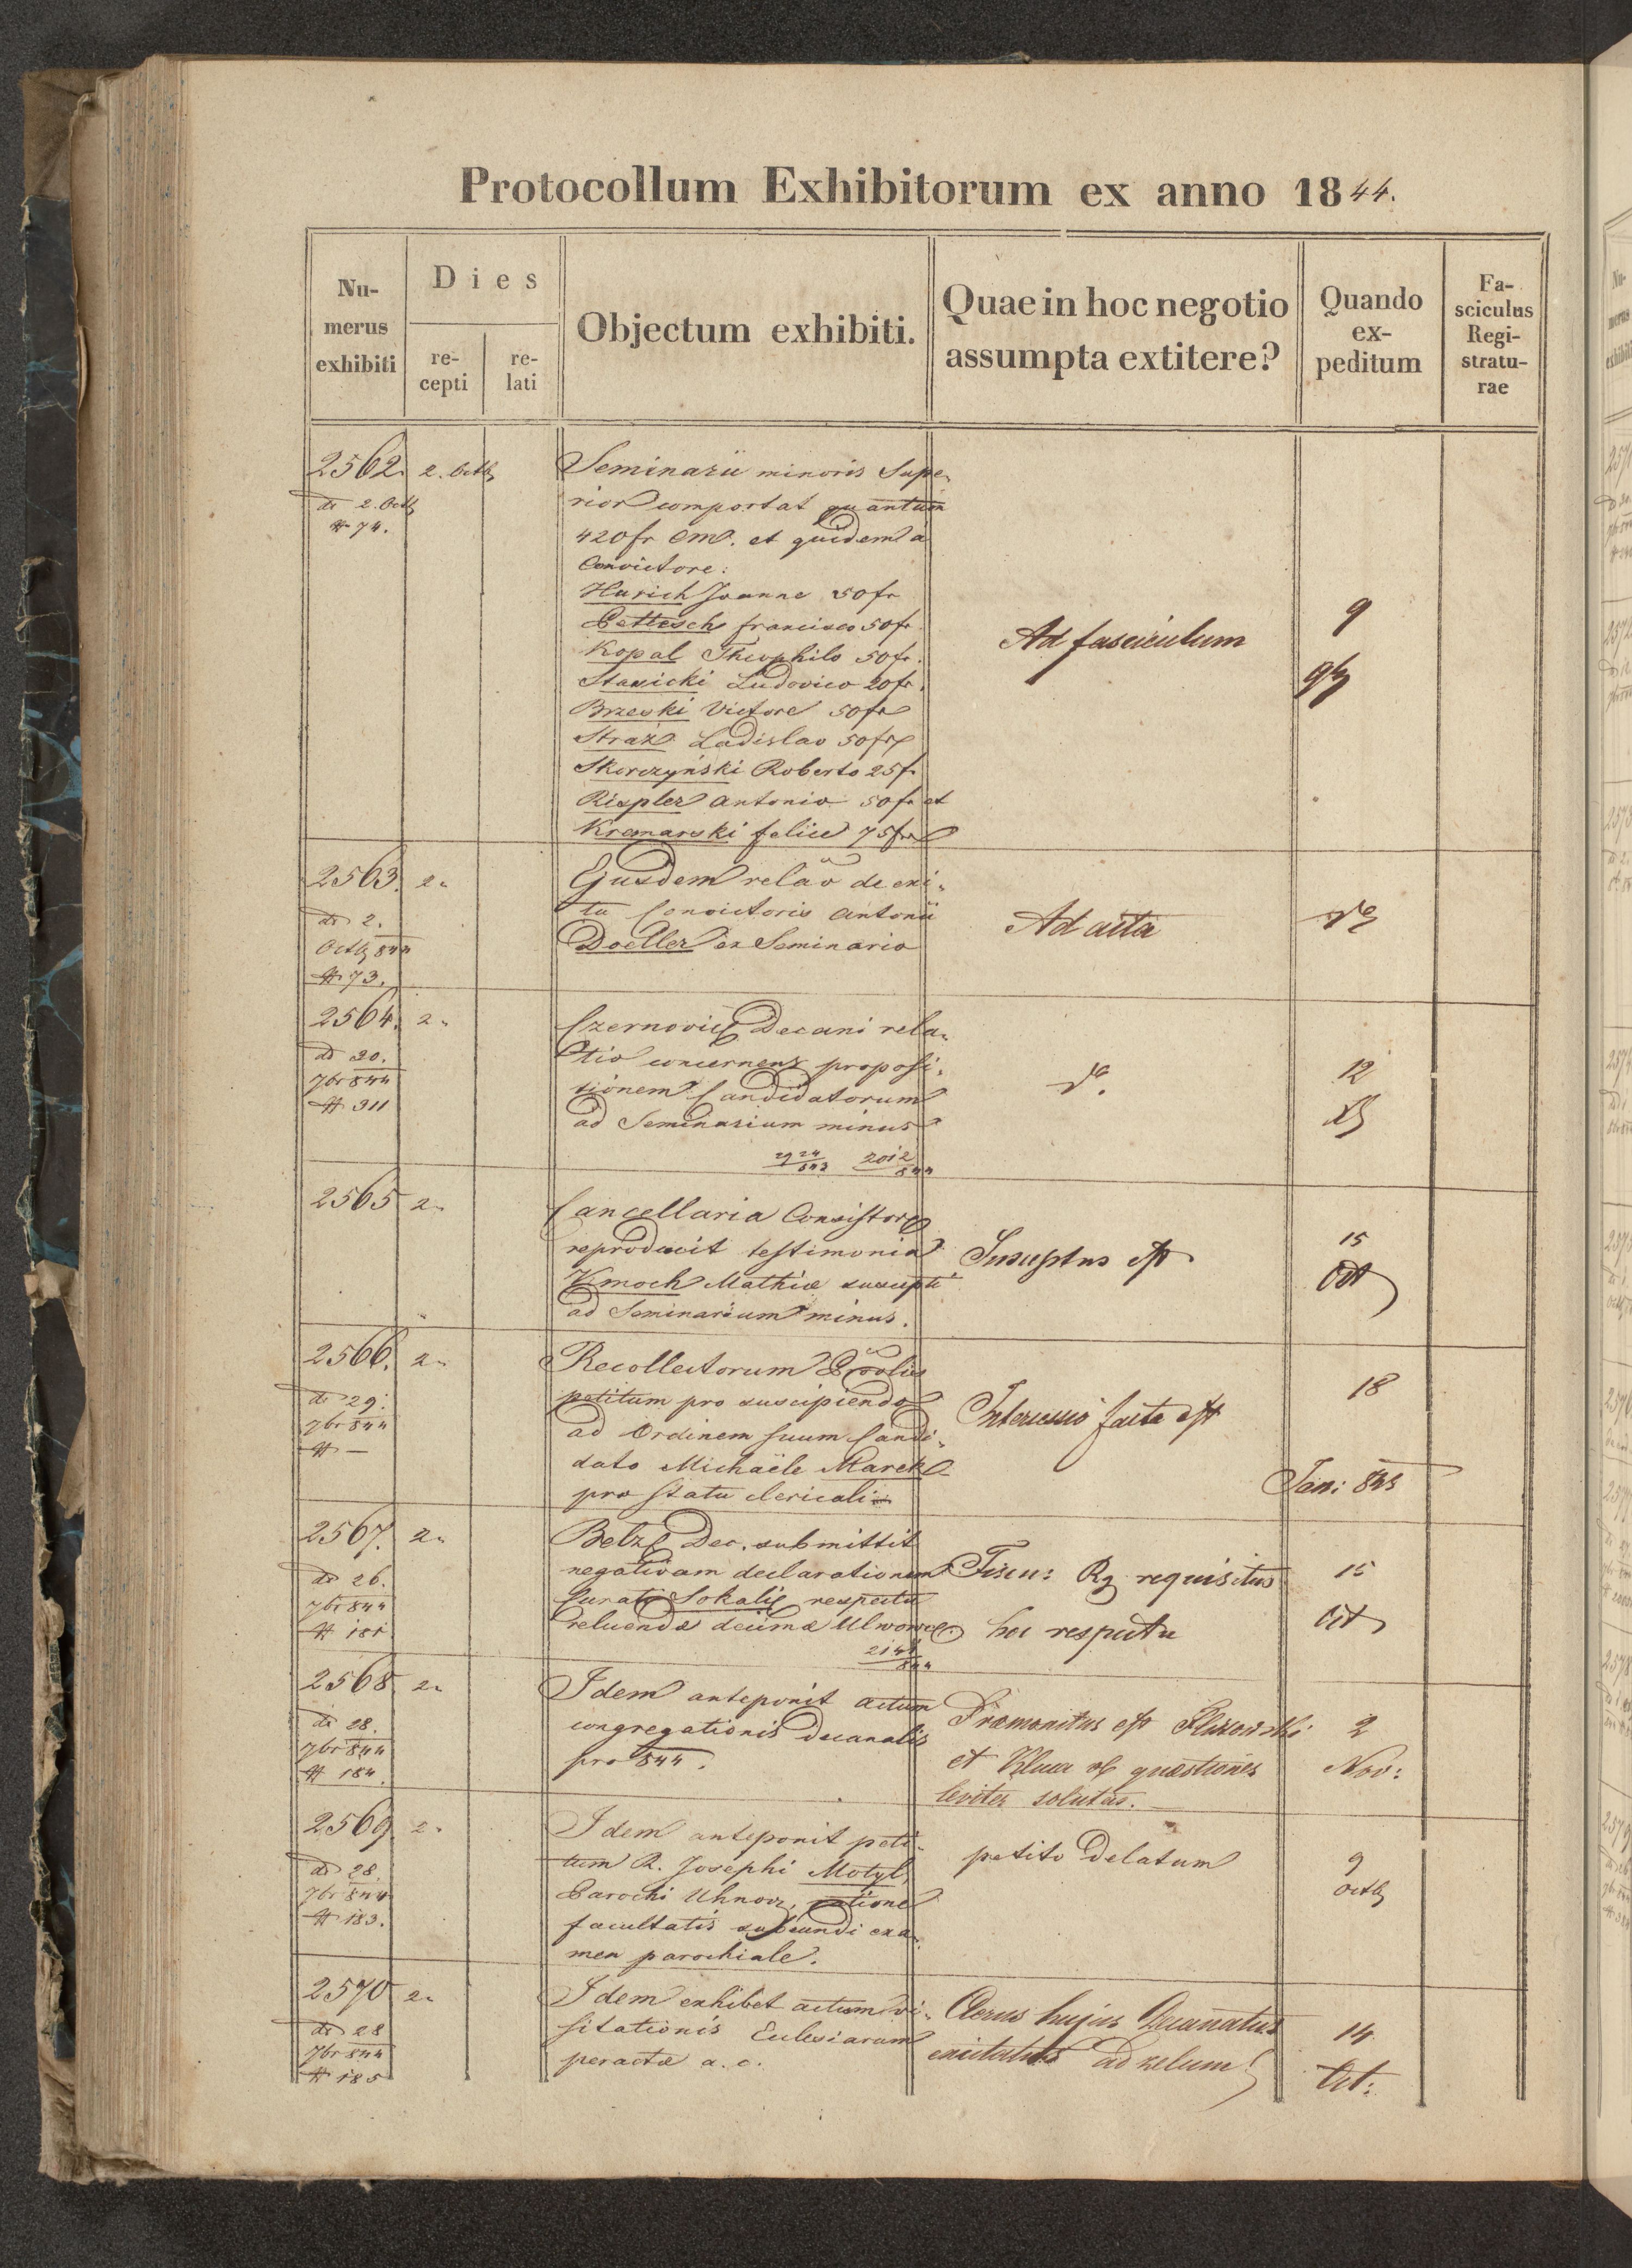 Protocollum Exhibitorum ex anno 1844.
Nu-
merus
exhibiti
Dies
re-
cepti
re-
lati
Objectum exhibiti.
Quae in hoc negotio
assumpta extitere?
Quando
ex-
peditum
Fa-
sciculus
Regi-
stratu-
rae
2562. 2. Octb
dº 2. Octb
# 74.
Seminarii minoris Supe-
rior comportat quantum
420 fr Cm. et quidem a
Convictore:
Hurich Joanne 50 fr
Pettesch francisco 50 fr
Kopal Theophilo 50 fr.
Stawicki Ludovico 20 fr.
Brzeski Victore 50 fr
Straz Ladislao 50 fr
Skorczyński Roberto 25 f.
Rispler Antonio 50 fr et
Kremarski felice 75 fr
Ad fasciculum
9
2563. 2.
dº 2.
Octb 844
# 73.
Ejusdem relão de exi-
tu Convictoris Antonii
Doeller ex Seminario
Ad acta
2564. 2.
dº 30.
7br 844
# 311
Czernovic Decani rela-
tio concernens proposi-
tionem Candidatorum
ad Seminarium minus
2012
844
12
2565 2.
Cancellaria Consistor
reproducit testimonia
Kmoch Mathiæ suscepti
ad Seminarium minus.
Susceptus est
15
Oct
2566. 2.
dº 29.
7br 844
# —
Recollectorum
petitum pro suscipiendo
ad Ordinem suum Candi-
dato Michaële Marek
pro statu clericali
Intercessio facta est
18
Jan: 845
2567. 2.
dº 26.
7br 844
# 181
Belz Dec. submittit
negativam declarationem
Curati Sokalie respectu
reluendæ decimæ Ulwowec.
2141
844
Fiscu: Rg requisitus
hoc respectu
15
Oct
2568 2.
dº 28.
7br 844
# 184.
Idem anteponit actum
congregationis Decanalis
pro 844.
Præmonitus est
et ob quæstiones
leviter solutas.
2
Nov:
2569 2.
dº 28.
7br 844
# 183.
Idem anteponit peti-
tum R. Josephi Motyl,
Parochi Uhnov, ratione
facultatis subeundi exa-
men parochiale.
petito delatum
9
octb
2570 2.
dº 28
7br 844
# 185
Idem exhibet actum vi-
sitationis Ecclesiarum
peractæ a. c.
Clerus hujus Decanatus
excitatus ad zelum
14
Oct: